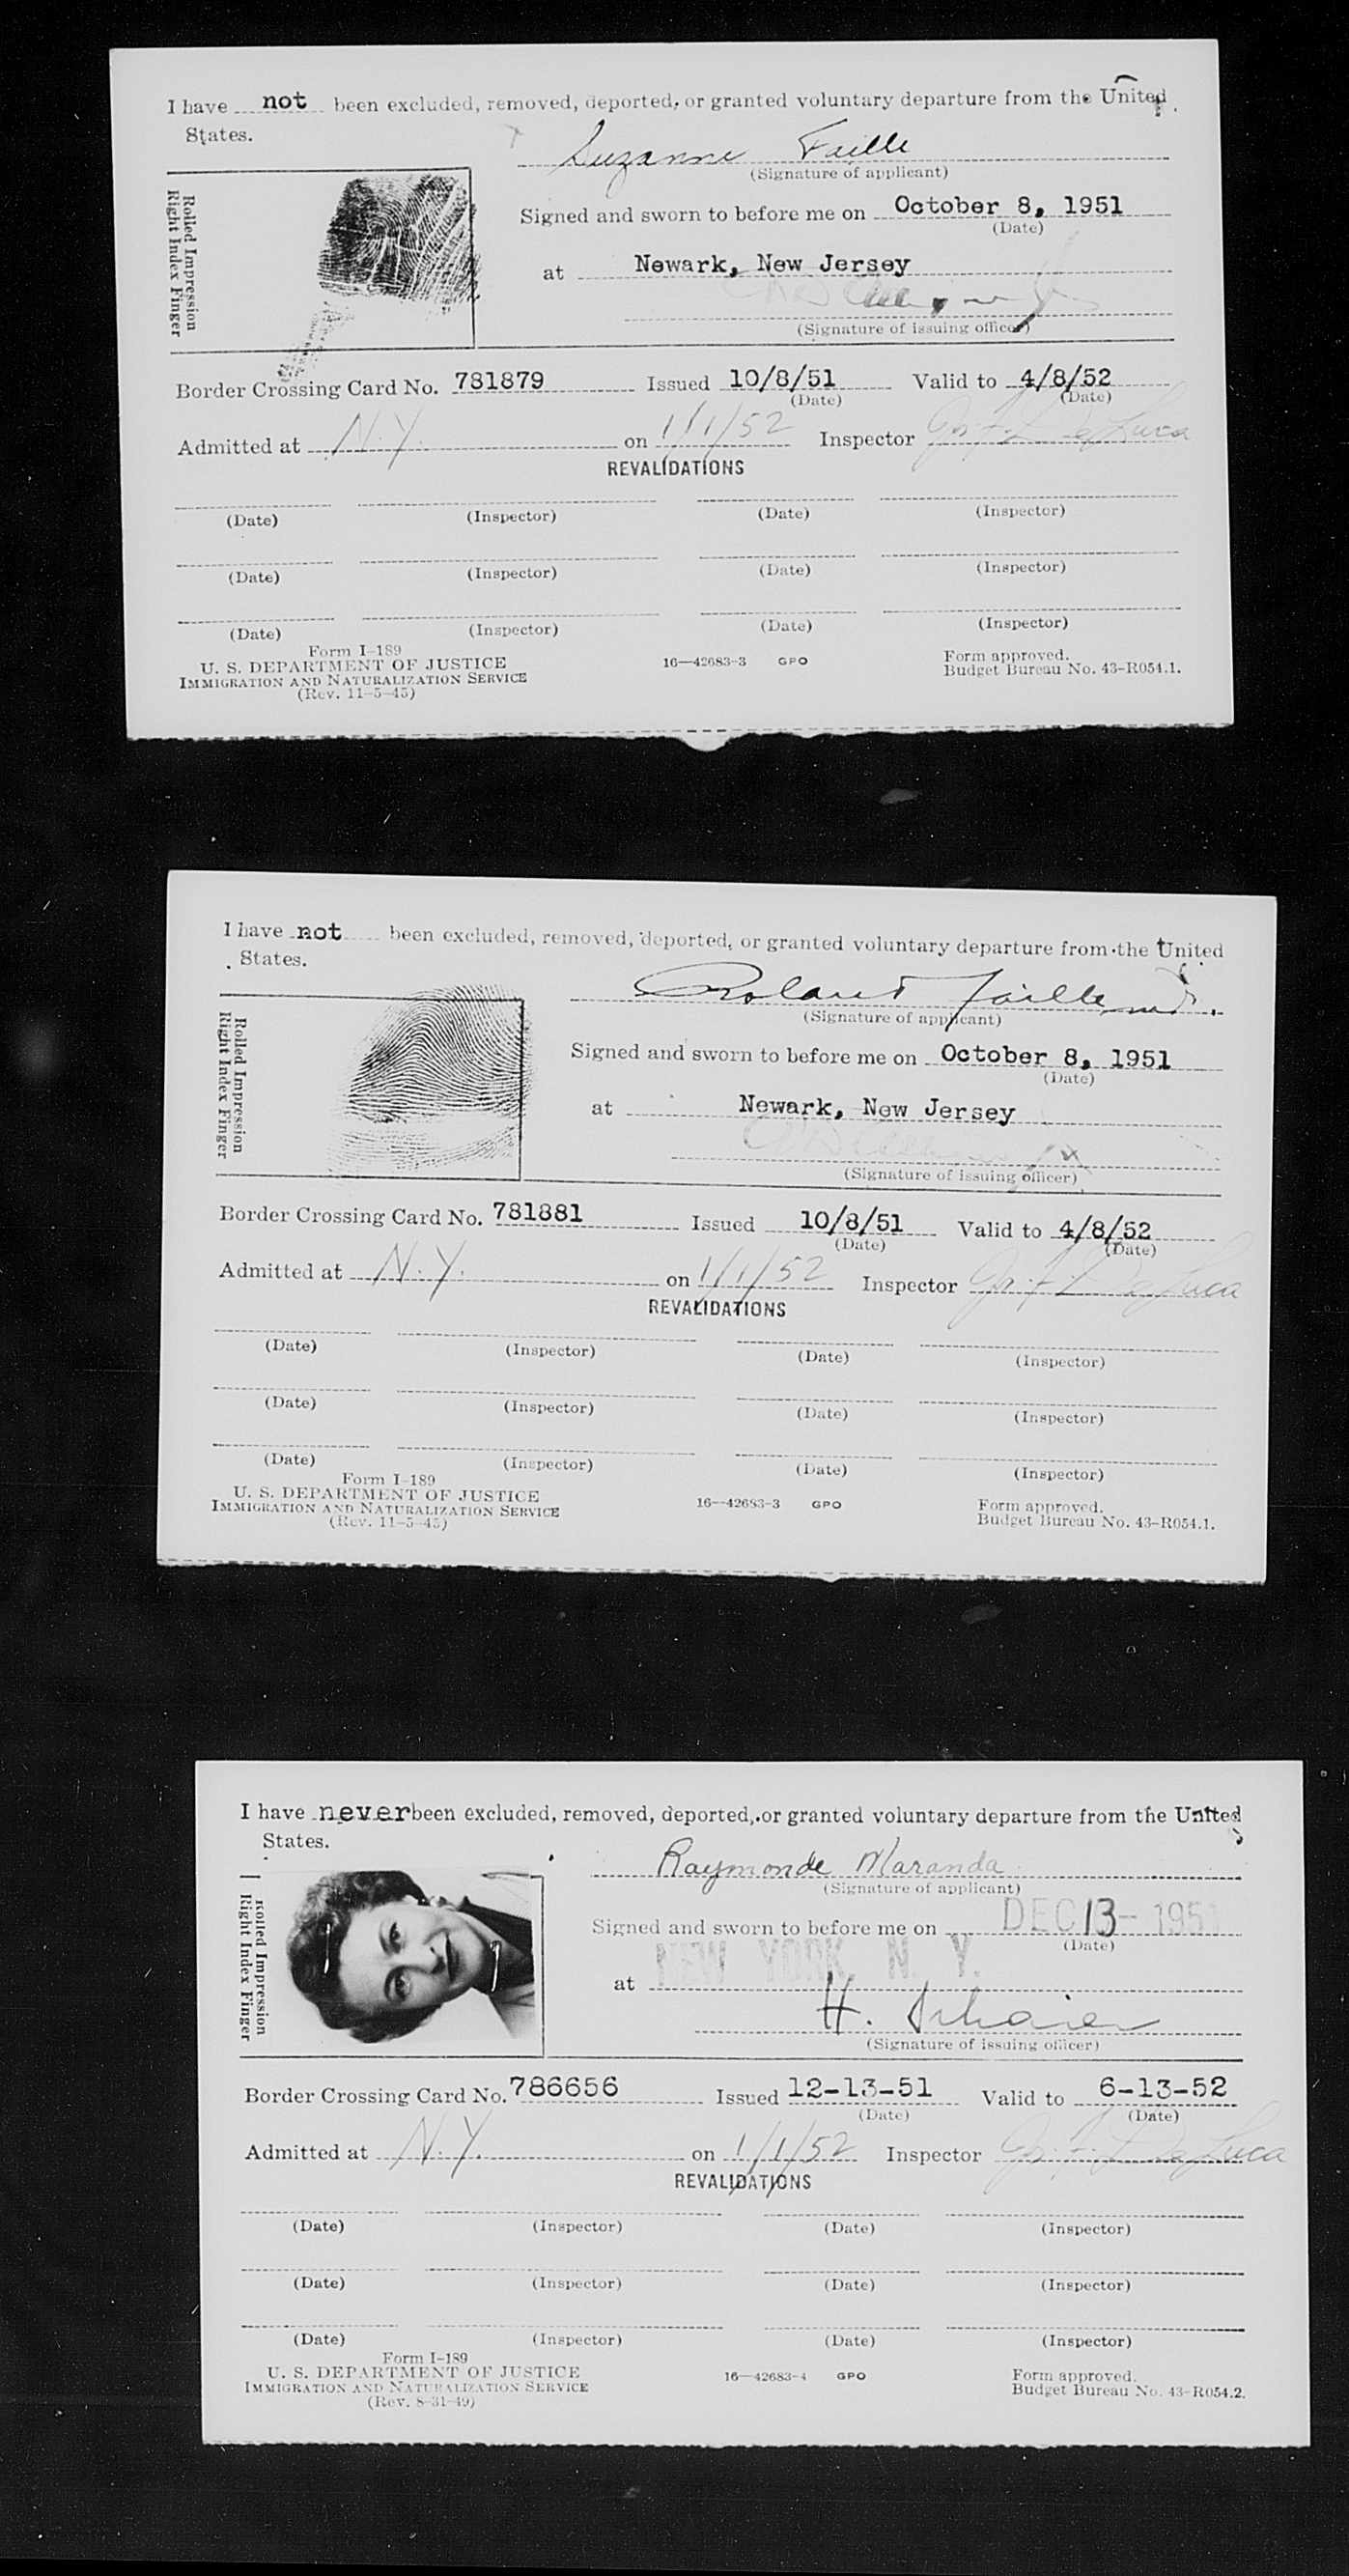 I have not been excluded, removed, deported, or granted voluntary departure from the United
States.
Suzanne Faille
(Signature of applicant)
Rolled Impression
Right Index Finger
Signed and sworn to before me on October 8, 1951
(Date)
at Newark, New Jersey
(Signature of issuing officer)
Border Crossing Card No. 781879 Issued 10/8/51 Valid to 4/8/52
(Date) (Date)
Admitted at N.Y. on 1/1/52 Inspector
REVALIDATIONS
(Date) (Inspector) (Date) (Inspector)
(Date) (Inspector) (Date) (Inspector)
(Date) (Inspector) (Date) (Inspector)
Form I-189
U. S. DEPARTMENT OF JUSTICE 16—42683-3 GPO Form approved.
IMMIGRATION AND NATURALIZATION SERVICE Budget Bureau No. 43-R054.1.
(Rev. 11-5-45)
I have not been excluded, removed, deported, or granted voluntary departure from the United
States.
Roland Faille md.
(Signature of applicant)
Rolled Impression
Right Index Finger
Signed and sworn to before me on October 8, 1951
(Date)
at Newark, New Jersey
(Signature of issuing officer)
Border Crossing Card No. 781881 Issued 10/8/51 Valid to 4/8/52
(Date) (Date)
Admitted at N.Y. on 1/1/52 Inspector
REVALIDATIONS
(Date) (Inspector) (Date) (Inspector)
(Date) (Inspector) (Date) (Inspector)
(Date) (Inspector) (Date) (Inspector)
Form I-189
U. S. DEPARTMENT OF JUSTICE 16—42683-3 GPO Form approved.
IMMIGRATION AND NATURALIZATION SERVICE Budget Bureau No. 43-R054.1.
(Rev. 11-5-45)
I have never been excluded, removed, deported, or granted voluntary departure from the United
States.
Raymonde Maranda
(Signature of applicant)
Rolled Impression
Right Index Finger
Signed and sworn to before me on DEC 13 - 1951
(Date)
at NEW YORK, N. Y.
H.
(Signature of issuing officer)
Border Crossing Card No. 786656 Issued 12-13-51 Valid to 6-13-52
(Date) (Date)
Admitted at N.Y. on 1/1/52 Inspector
REVALIDATIONS
(Date) (Inspector) (Date) (Inspector)
(Date) (Inspector) (Date) (Inspector)
(Date) (Inspector) (Date) (Inspector)
Form I-189
U. S. DEPARTMENT OF JUSTICE 16—42683-4 GPO Form approved.
IMMIGRATION AND NATURALIZATION SERVICE Budget Bureau No. 43-R054.2.
(Rev. 8-31-49)